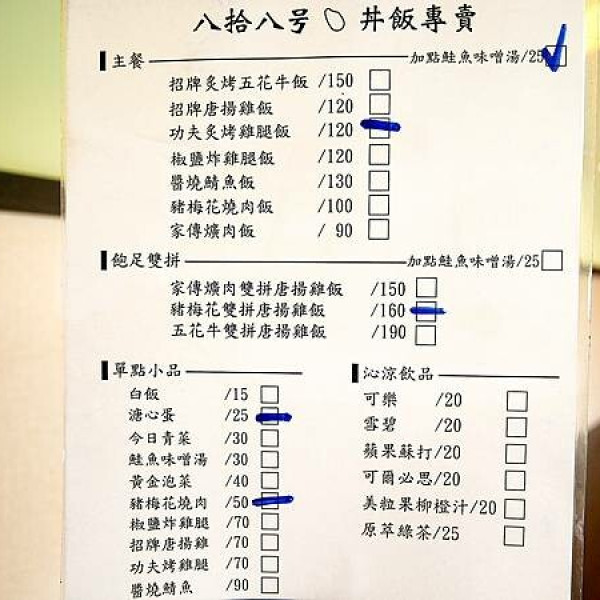 八拾八号 丼飯專賣
主餐 加點鮭魚味噌湯/25
招牌炙烤五花牛飯 /150
招牌唐揚雞飯 /120
功夫炙烤雞腿飯 /120
椒鹽炸雞腿飯 /120
醬燒鯖魚飯 /130
豬梅花燒肉飯 /100
家傳爌肉飯 / 90
飽足雙拼 加點鮭魚味噌湯/25
家傳爌肉雙拼唐揚雞飯 /150
豬梅花雙拼唐揚雞飯 /160
五花牛雙拼唐揚雞飯 /190
單點小品
白飯 /15
溏心蛋 /25
今日青菜 /30
鮭魚味噌湯 /30
黃金泡菜 /40
豬梅花燒肉 /50
椒鹽炸雞腿 /70
招牌唐揚雞 /70
功夫烤雞腿 /70
醬燒鯖魚 /90
沁涼飲品
可樂 /20
雪碧 /20
蘋果蘇打/20
可爾必思/20
美粒果柳橙汁/20
原萃綠茶/25